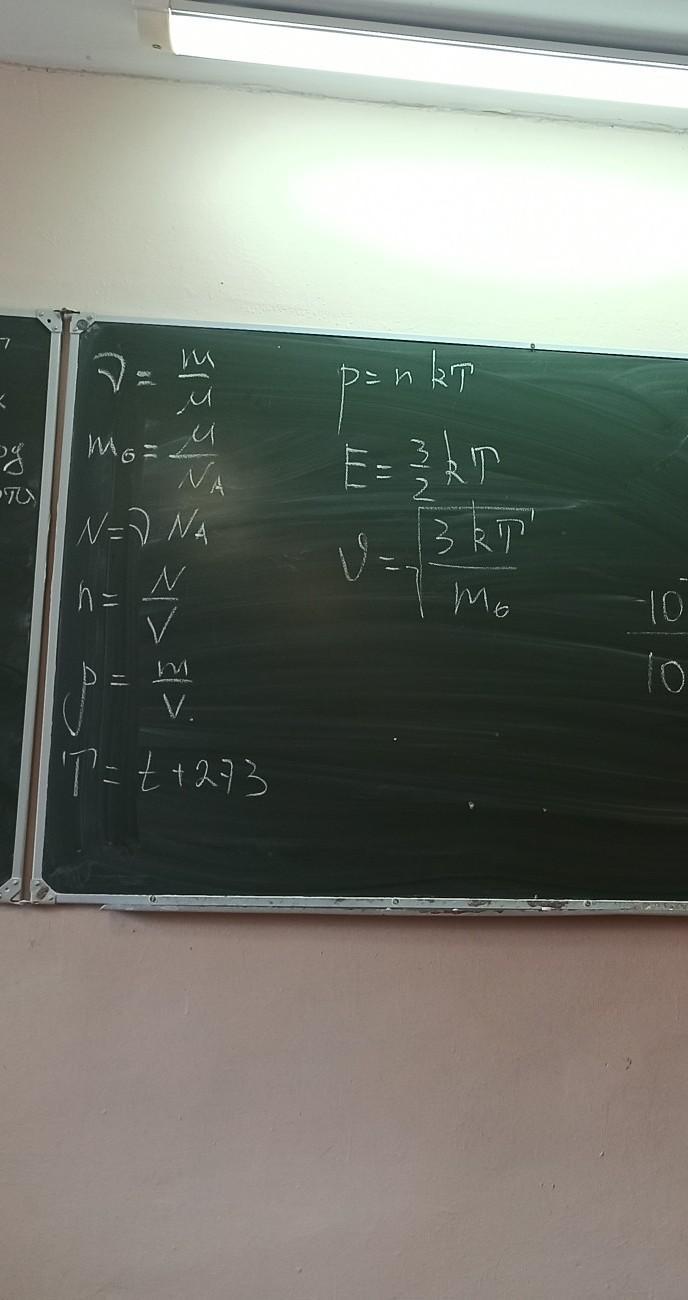 ν = m/μ
m₀ = μ/N_A
N = ν N_A
n = N/V
ρ = m/V.
T = t + 273
p = n kT
E = 3/2 kT
v = √(3 kT/m₀)